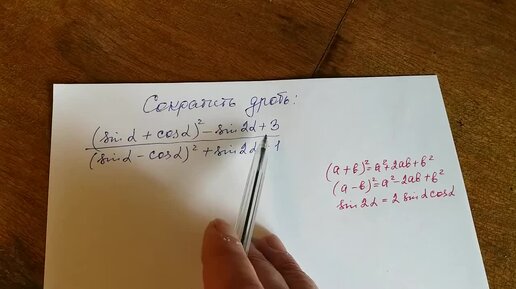 Сократить дробь:
(sinα + cosα)² - sin2α + 3
(sinα - cosα)² + sin2α 1
(a+b)² = a² + 2ab + b²
(a-b)² = a² - 2ab + b²
sin2α = 2 sinα cosα